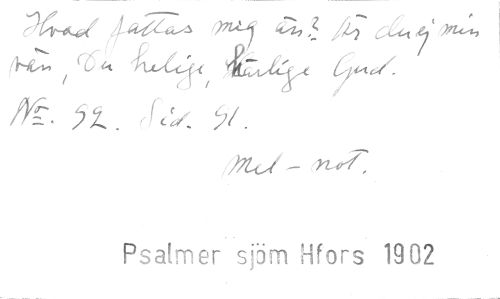 Hvad fattas mig än? Är du ej min
vän, Du helige, härlige Gud.
No. 92. Sid. 91.
Mel-not.
Psalmer sjöm Hfors 1902